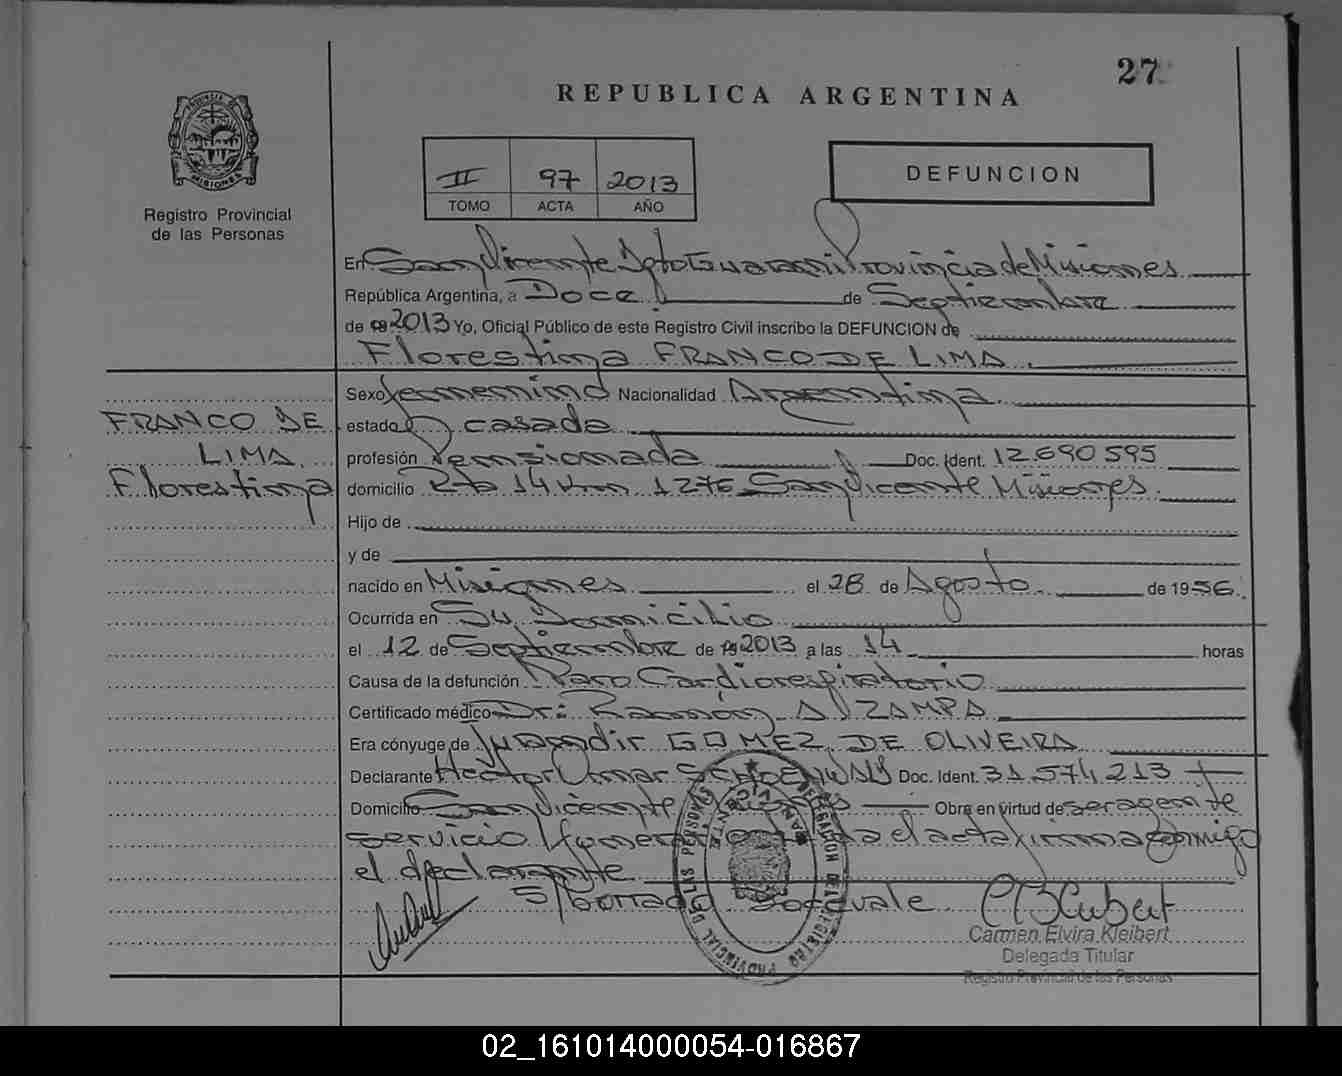 27
REPUBLICA ARGENTINA
PROVINCIA DE
MISIONES
Registro Provincial
de las Personas
II 97 2013
TOMO ACTA AÑO
DEFUNCION
En San Vicente Dpto Guarani Provincia de Misiones
República Argentina, a Doce de Septiembre
de 2013 Yo, Oficial Público de este Registro Civil inscribo la DEFUNCION de
Florestina FRANCO DE LIMA.
FRANCO DE
LIMA
Florestina
Sexo femenino Nacionalidad Argentina
estado casada
profesión Pensionada Doc. Ident. 12.690.595
domicilio Rta 14 Km 1276 San Vicente Misiones.
Hijo de
y de
nacido en Misiones el 28 de Agosto de 1956
Ocurrida en Su Domicilio
el 12 de Septiembre de 2013 a las 14 horas
Causa de la defunción Paro Cardiorespiratorio
Certificado médico Dr: Ramón A. ZAMPA
Era cónyuge de Juandir GOMEZ DE OLIVEIRA
Declarante Hector Omar Doc. Ident. 31.574.213
Domicilio San Vicente Obra en virtud de ser agente
servicio el acta firma conmigo
el declarante
S/borrado vale
Carmen Elvira Kleibert
Delegada Titular
Registro Provincial de las Personas
02_161014000054-016867